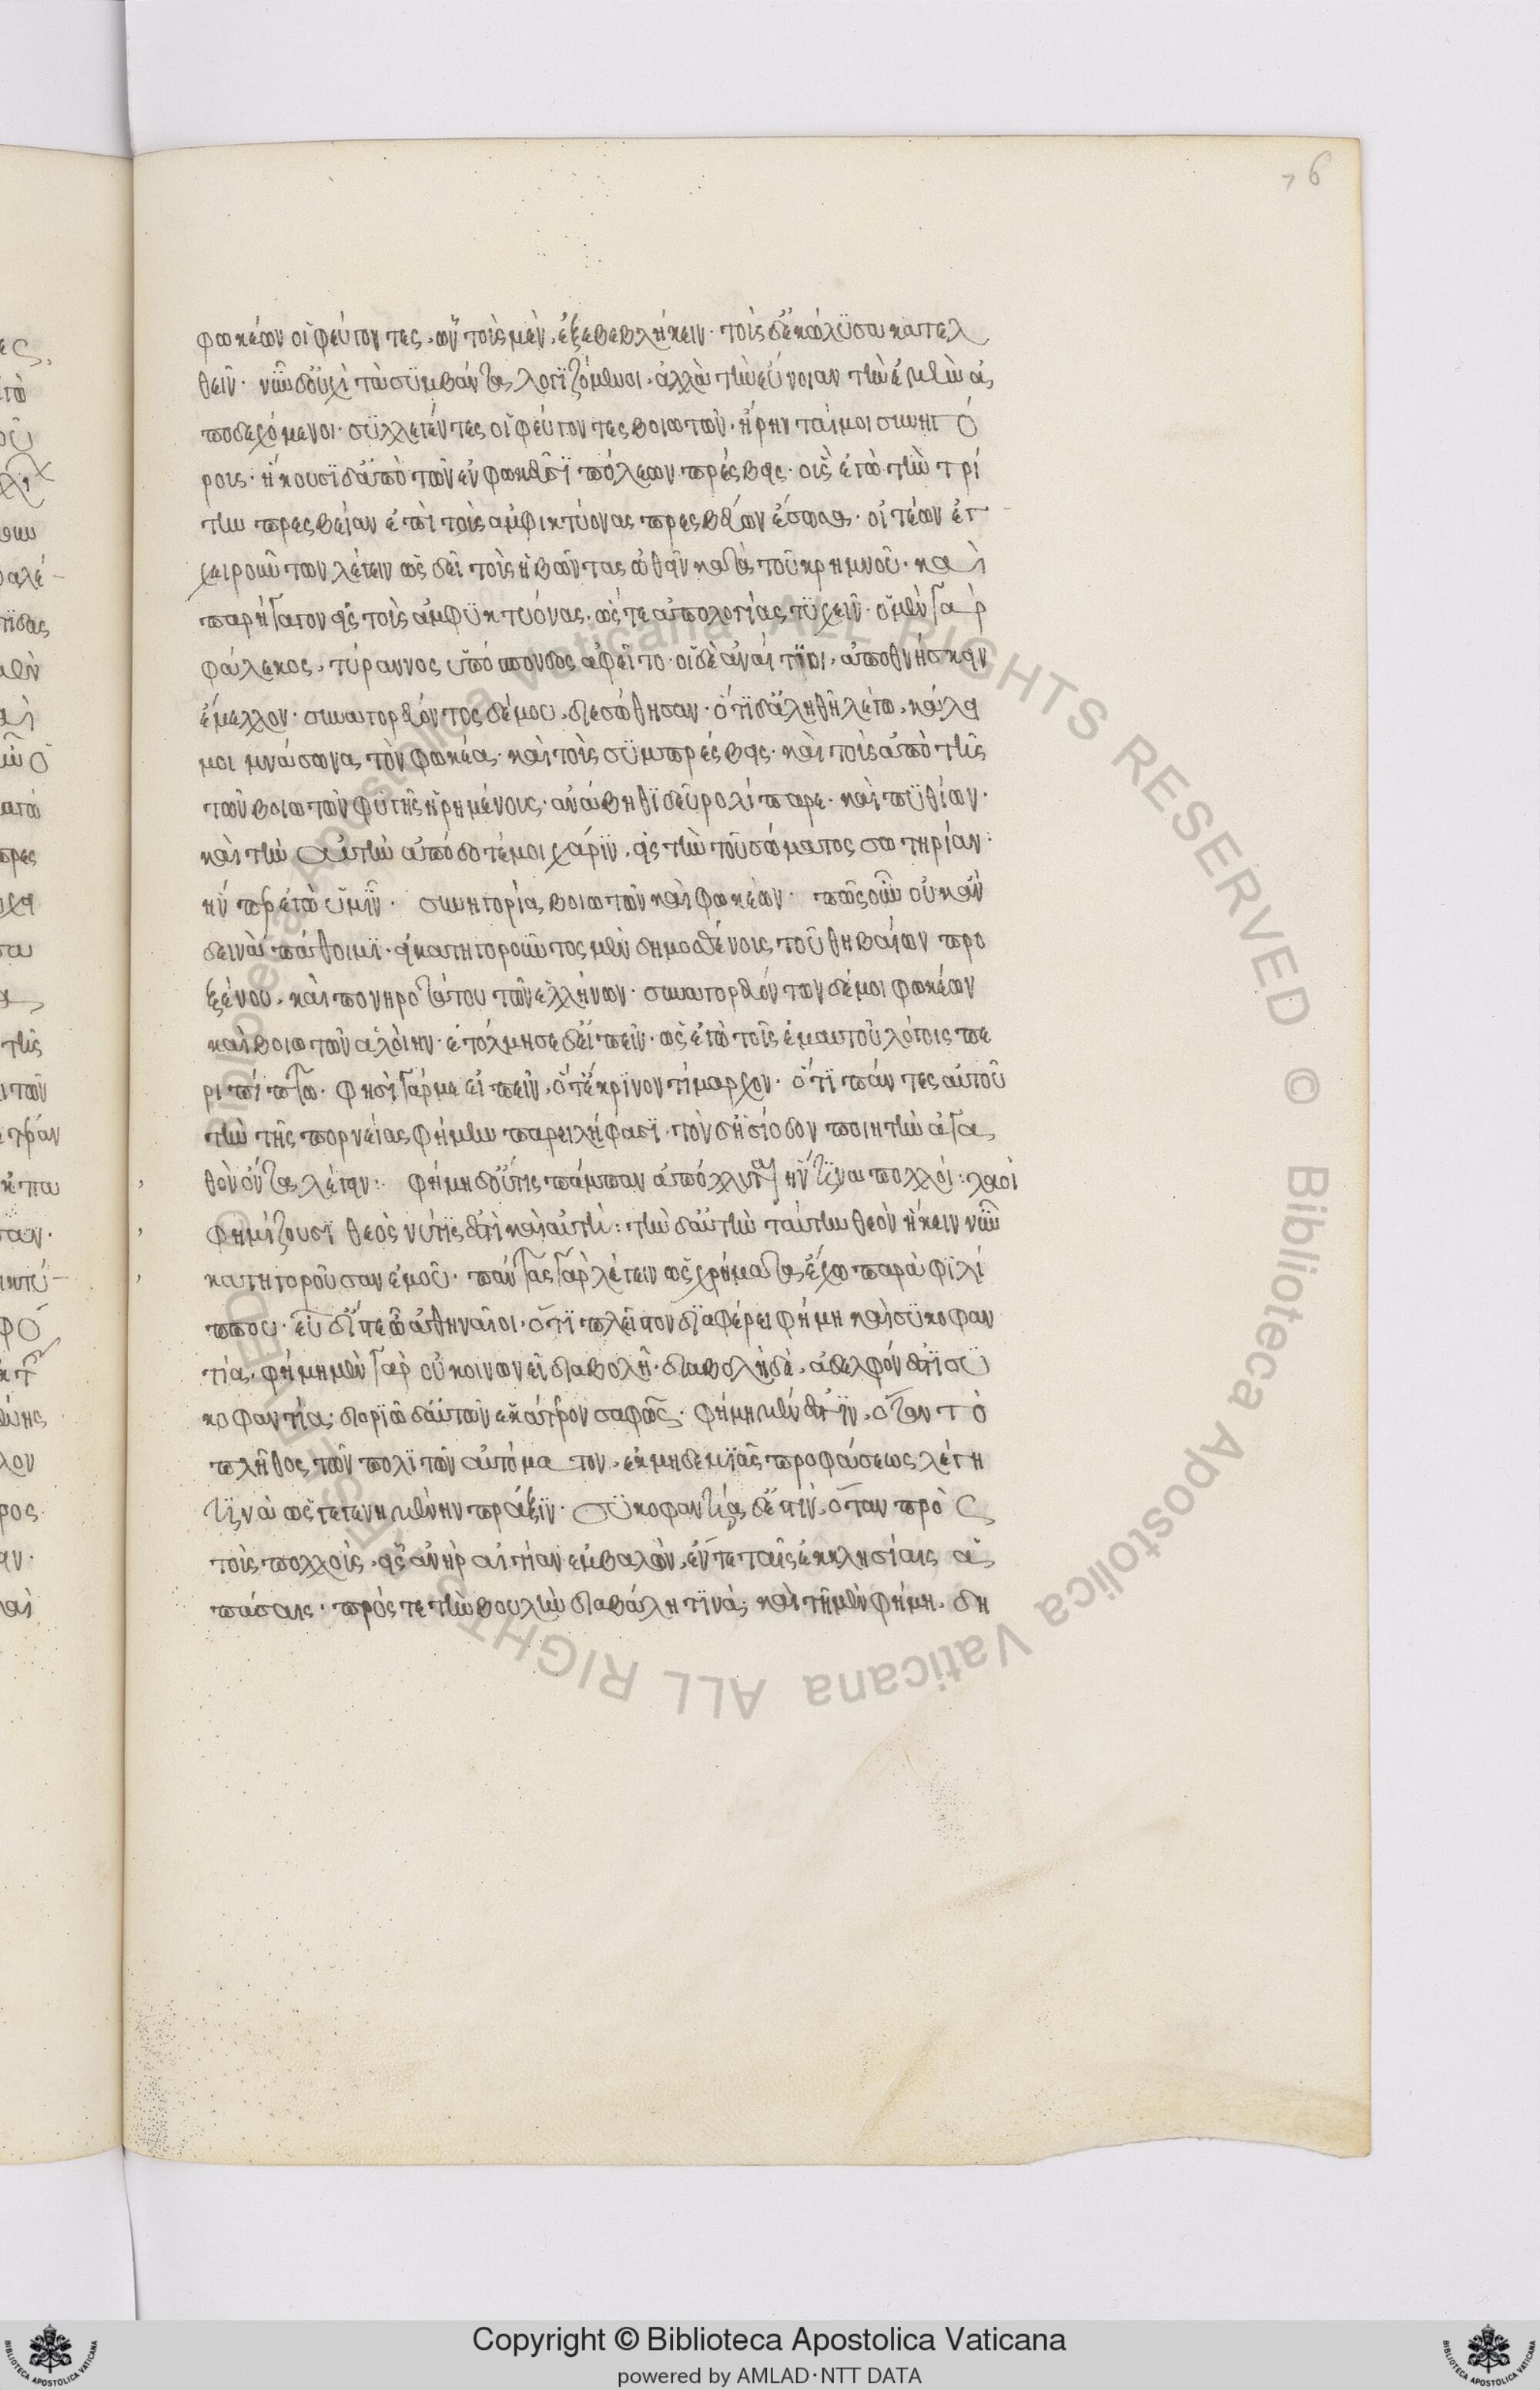 φωκέων οἱ φεύγοντες, ὧν τοὺς μὲν, ἐξεβεβλήκειν· τοὺς δ' ἐκώλυσα κατελ
θεῖν· νῦν δ' οὐχὶ τὰ συμβάντα λογιζόμενοι, ἀλλὰ τὴν εὔνοιαν τὴν ἐμὴν ἀ
ποδεχόμενοι· συλλεγέντες οἱ φεύγοντες βοιωτῶν· ἥρηνταί μοι συνηγό
ρους· ἥκουσι δ' ἀπὸ τῶν ἐν φωκεῦσι πόλεων πρέσβεις· οὓς ἐγὼ τὴν τρί
την πρεσβείαν ἐπὶ τοὺς ἀμφικτύονας πρεσβεύων ἔσωσα· οἰτέων ἐγ
χειρούντων λέγειν ὡς δεῖ τοὺς ἡβῶντας ὠθεῖν κατὰ τοῦ κρημνοῦ· καὶ
παρήγαγον εἰς τοὺς ἀμφυκτυόνας· ὥστε ἀπολογίας τυχεῖν· ὁ μὲν γὰρ
φάλεκος, τύραννος ὑπόσπονδος ἀφεῖτο· οἱ δὲ ἀναίτιοι, ἀποθνήσκειν
ἔμελλον· συναγορεύοντος δ' ἐμοῦ, διεσώθησαν· ὅτι δ' ἀληθῆ λέγω, κάλει
μοι μνάσωνα τὸν φωκέα· καὶ τοὺς συμπρέσβεις· καὶ τοὺς ἀπὸ τῆς
τῶν βοιωτῶν φυγῆς ἡρημένους· ἀνάβηθι δεῦρο λίπαρε· καὶ πυθίων·
καὶ τὴν αὐτὴν ἀπόδοτέ μοι χάριν, εἰς τὴν τοῦ σώματος σωτηρίαν·
ἣν περ ἐγὼ ὑμῖν· συνηγορία βοιωτῶν καὶ φωκέων· πῶς οὖν οὐκ ἂν
δεινὰ πάθοιμι· εἰ κατηγοροῦντος μὲν δημοσθένους τοῦ θηβαίων προ
ξένου, καὶ πονηροτάτου τῶν ἑλλήνων· συναγορευόντων δ' ἐμοὶ φωκέων
καὶ βοιωτῶν ἁλοίην· ἐτόλμησε δ' εἰπεῖν· ὡς ἐγὼ τοῖς ἐμαυτοῦ λόγοις πε
ριπίπτω· φησὶ γάρ με εἰπεῖν, ὅτ' ἔκρινον τίμαρχον· ὅτι πάντες αὐτοῦ
τὴν τῆς πορνείας φήμην παρειλήφασι· τὸν δ' ἡσίοδον ποιητὴν ἀγα
θὸν ὄντα λέγειν:· φήμη δ' οὔτις πάμπαν ἀπόλλυται ἥν τινα πολλοί: λαοὶ
φημίζουσι θεός νύ τις ἐστὶ καὶ αὐτή: τὴν δ' αὐτὴν ταύτην θεὸν ἥκειν νῦν
κατηγοροῦσαν ἐμοῦ· πάντας γὰρ λέγειν ὡς χρήματα ἔχω παρὰ φιλί
ππου· εὖ δ' ἴστε ὦ ἀθηναῖοι· ὅτι πλεῖστον διαφέρει φήμη καὶ συκοφαν
τία, φήμη μὲν γὰρ οὐ κοινωνεῖ διαβολῇ· διαβολὴ δὲ, ἀδελφόν ἐστι συ
κοφαντία· διοριῶ δ' αὐτῶν ἑκάτερον σαφῶς· φήμη μέν ἐστιν, ὅταν τὸ
πλῆθος τῶν πολιτῶν αὐτόματον, ἐκ μηδεμιᾶς προφάσεως λέγη
τινὰ ὡς γεγενημένην πρᾶξιν· συκοφαντία δ' ἐστὶν, ὅταν πρὸς
τοὺς πολλοὺς, εἷς ἀνὴρ αἰτίαν ἐμβαλὼν, ἔν τε ταῖς ἐκκλησίαις ἁ
πάσαις· πρός τε τὴν βουλὴν διαβάλη τινά· καὶ τῆ μὲν φήμη, δη